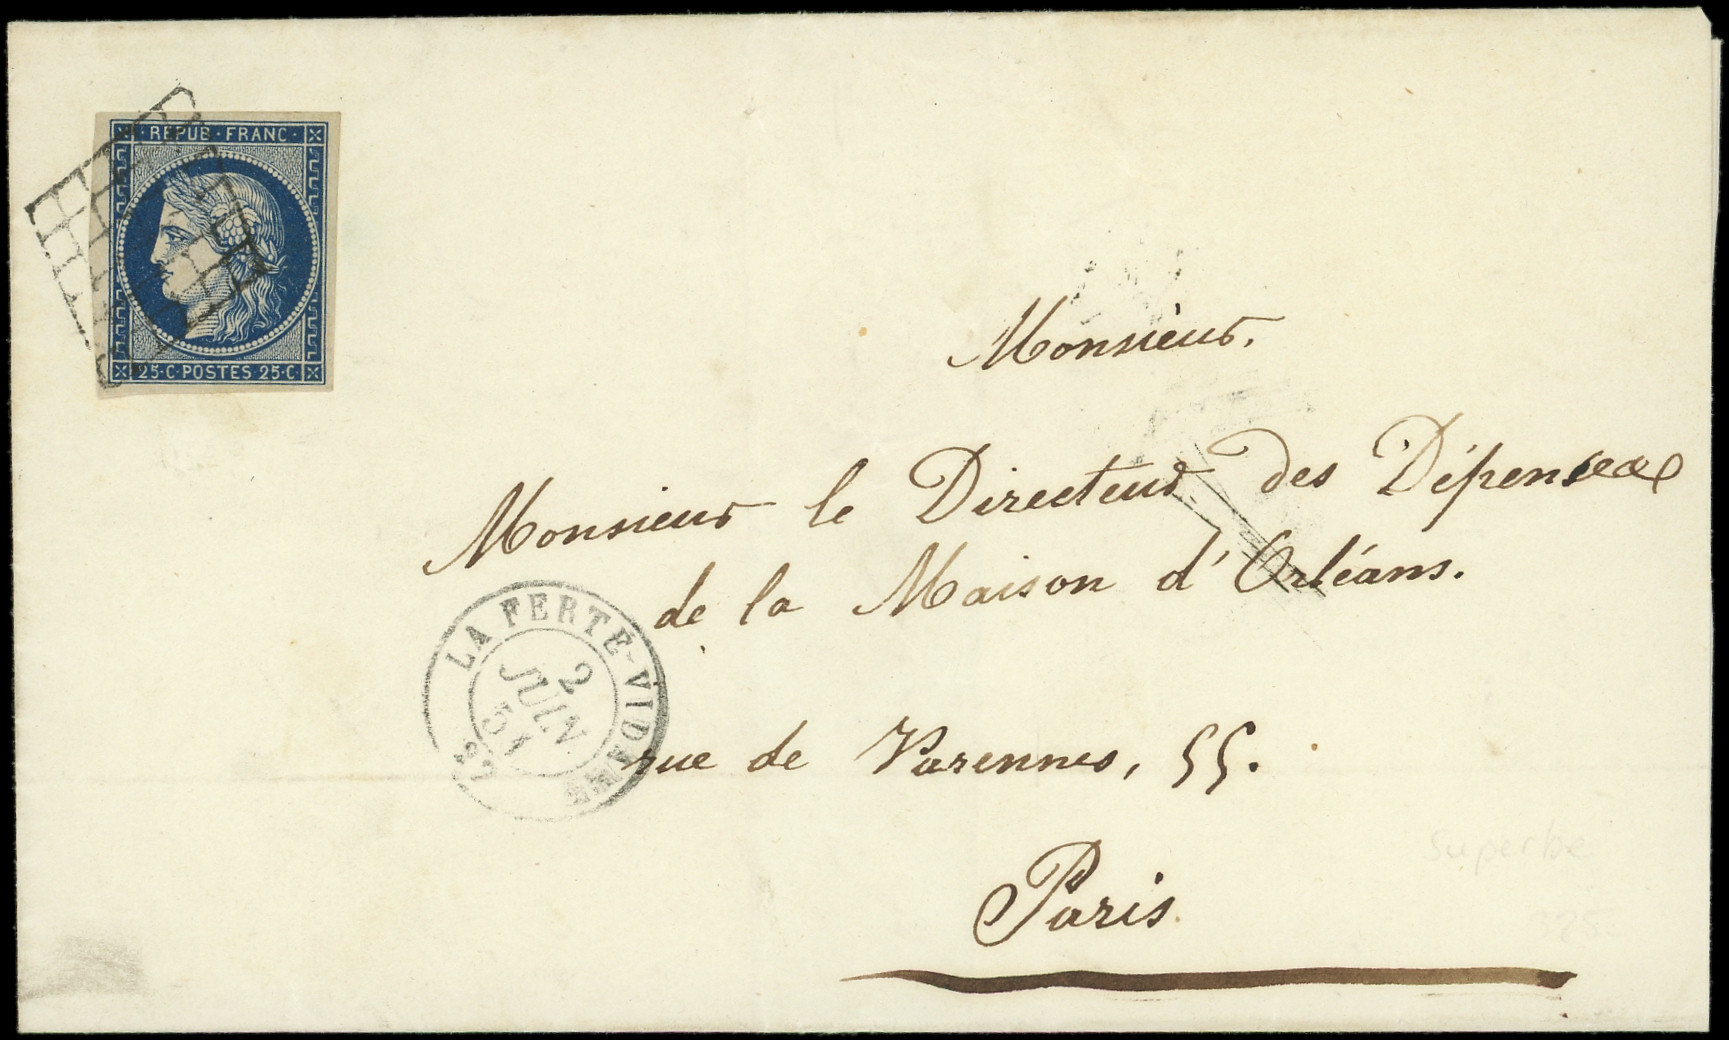 · REPUB · FRANC ·
25·C·POSTES 25·C
Monsieur.
Monsieur le Directeur des Dépenses
de la Maison d'Orléans.
LA FERTÉ-VIDAME
2
JUIN
51
rue de Varennes, 55.
Paris
Superbe